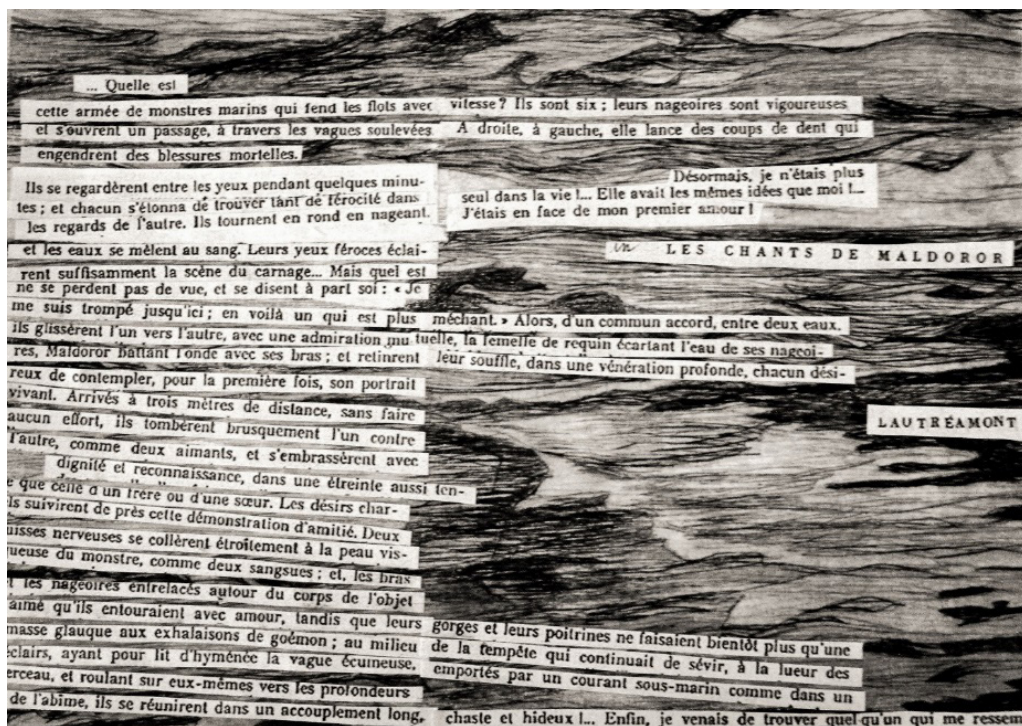 ... Quelle est
cette armée de monstres marins qui fend les flots avec vitesse ? Ils sont six ; leurs nageoires sont vigoureuses
et s'ouvrent un passage, à travers les vagues soulevées A droite, à gauche, elle lance des coups de dent qui
engendrent des blessures mortelles.
Ils se regardèrent entre les yeux pendant quelques minu-
tes ; et chacun s'étonna de trouver tant de férocité dans
les regards de l'autre. Ils tournent en rond en nageant.
Désormais, je n'étais plus
seul dans la vie !... Elle avait les mêmes idées que moi !...
J'étais en face de mon premier amour !
in LES CHANTS DE MALDOROR
et les eaux se mêlent au sang. Leurs yeux féroces éclai-
rent suffisamment la scène du carnage... Mais quel est
ne se perdent pas de vue, et se disent à part soi : « Je
me suis trompé jusqu'ici ; en voilà un qui est plus méchant. » Alors, d'un commun accord, entre deux eaux.
ils glissèrent l'un vers l'autre, avec une admiration mutuelle, la femelle de requin écartant l'eau de ses nageoi-
res, Maldoror battant l'onde avec ses bras ; et retinrent leur souffle, dans une vénération profonde, chacun dési-
reux de contempler, pour la première fois, son portrait
vivant. Arrivés à trois mètres de distance, sans faire
aucun effort, ils tombèrent brusquement l'un contre
l'autre, comme deux aimants, et s'embrassèrent avec
dignité et reconnaissance, dans une étreinte aussi ten-
LAUTRÉAMONT
e que celle d'un frère ou d'une sœur. Les désirs char-
ls suivirent de près cette démonstration d'amitié. Deux
uisses nerveuses se collèrent étroitement à la peau vis-
queuse du monstre, comme deux sangsues ; et, les bras
t les nageoires entrelacés autour du corps de l'objet
aimé qu'ils entouraient avec amour, tandis que leurs gorges et leurs poitrines ne faisaient bientôt plus qu'une
masse glauque aux exhalaisons de goémon ; au milieu de la tempête qui continuait de sévir, à la lueur des
éclairs, ayant pour lit d'hyménée la vague écumeuse, emportés par un courant sous-marin comme dans un
erceau, et roulant sur eux-mêmes vers les profondeurs
de l'abîme, ils se réunirent dans un accouplement long, chaste et hideux !... Enfin, je venais de trouver quelqu'un qui me ressem